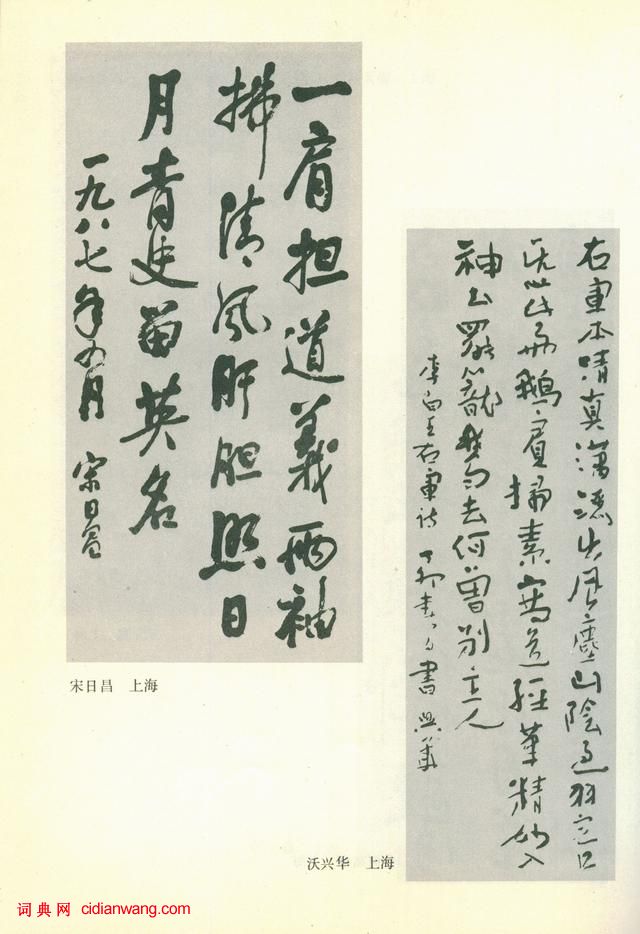 一肩担道義兩袖
拂清風肝胆照日
月青史留英名
一九八七年月 宋日昌
宋日昌 上海
右軍本清真瀟洒出風塵山陰過羽客
此好鵝賓掃素寫道經筆精妙入
神書罷籠鵝去何曾別主人
李白王右軍詩 丁卯春日書 興華
沃兴华 上海
词典网 cidianwang.com